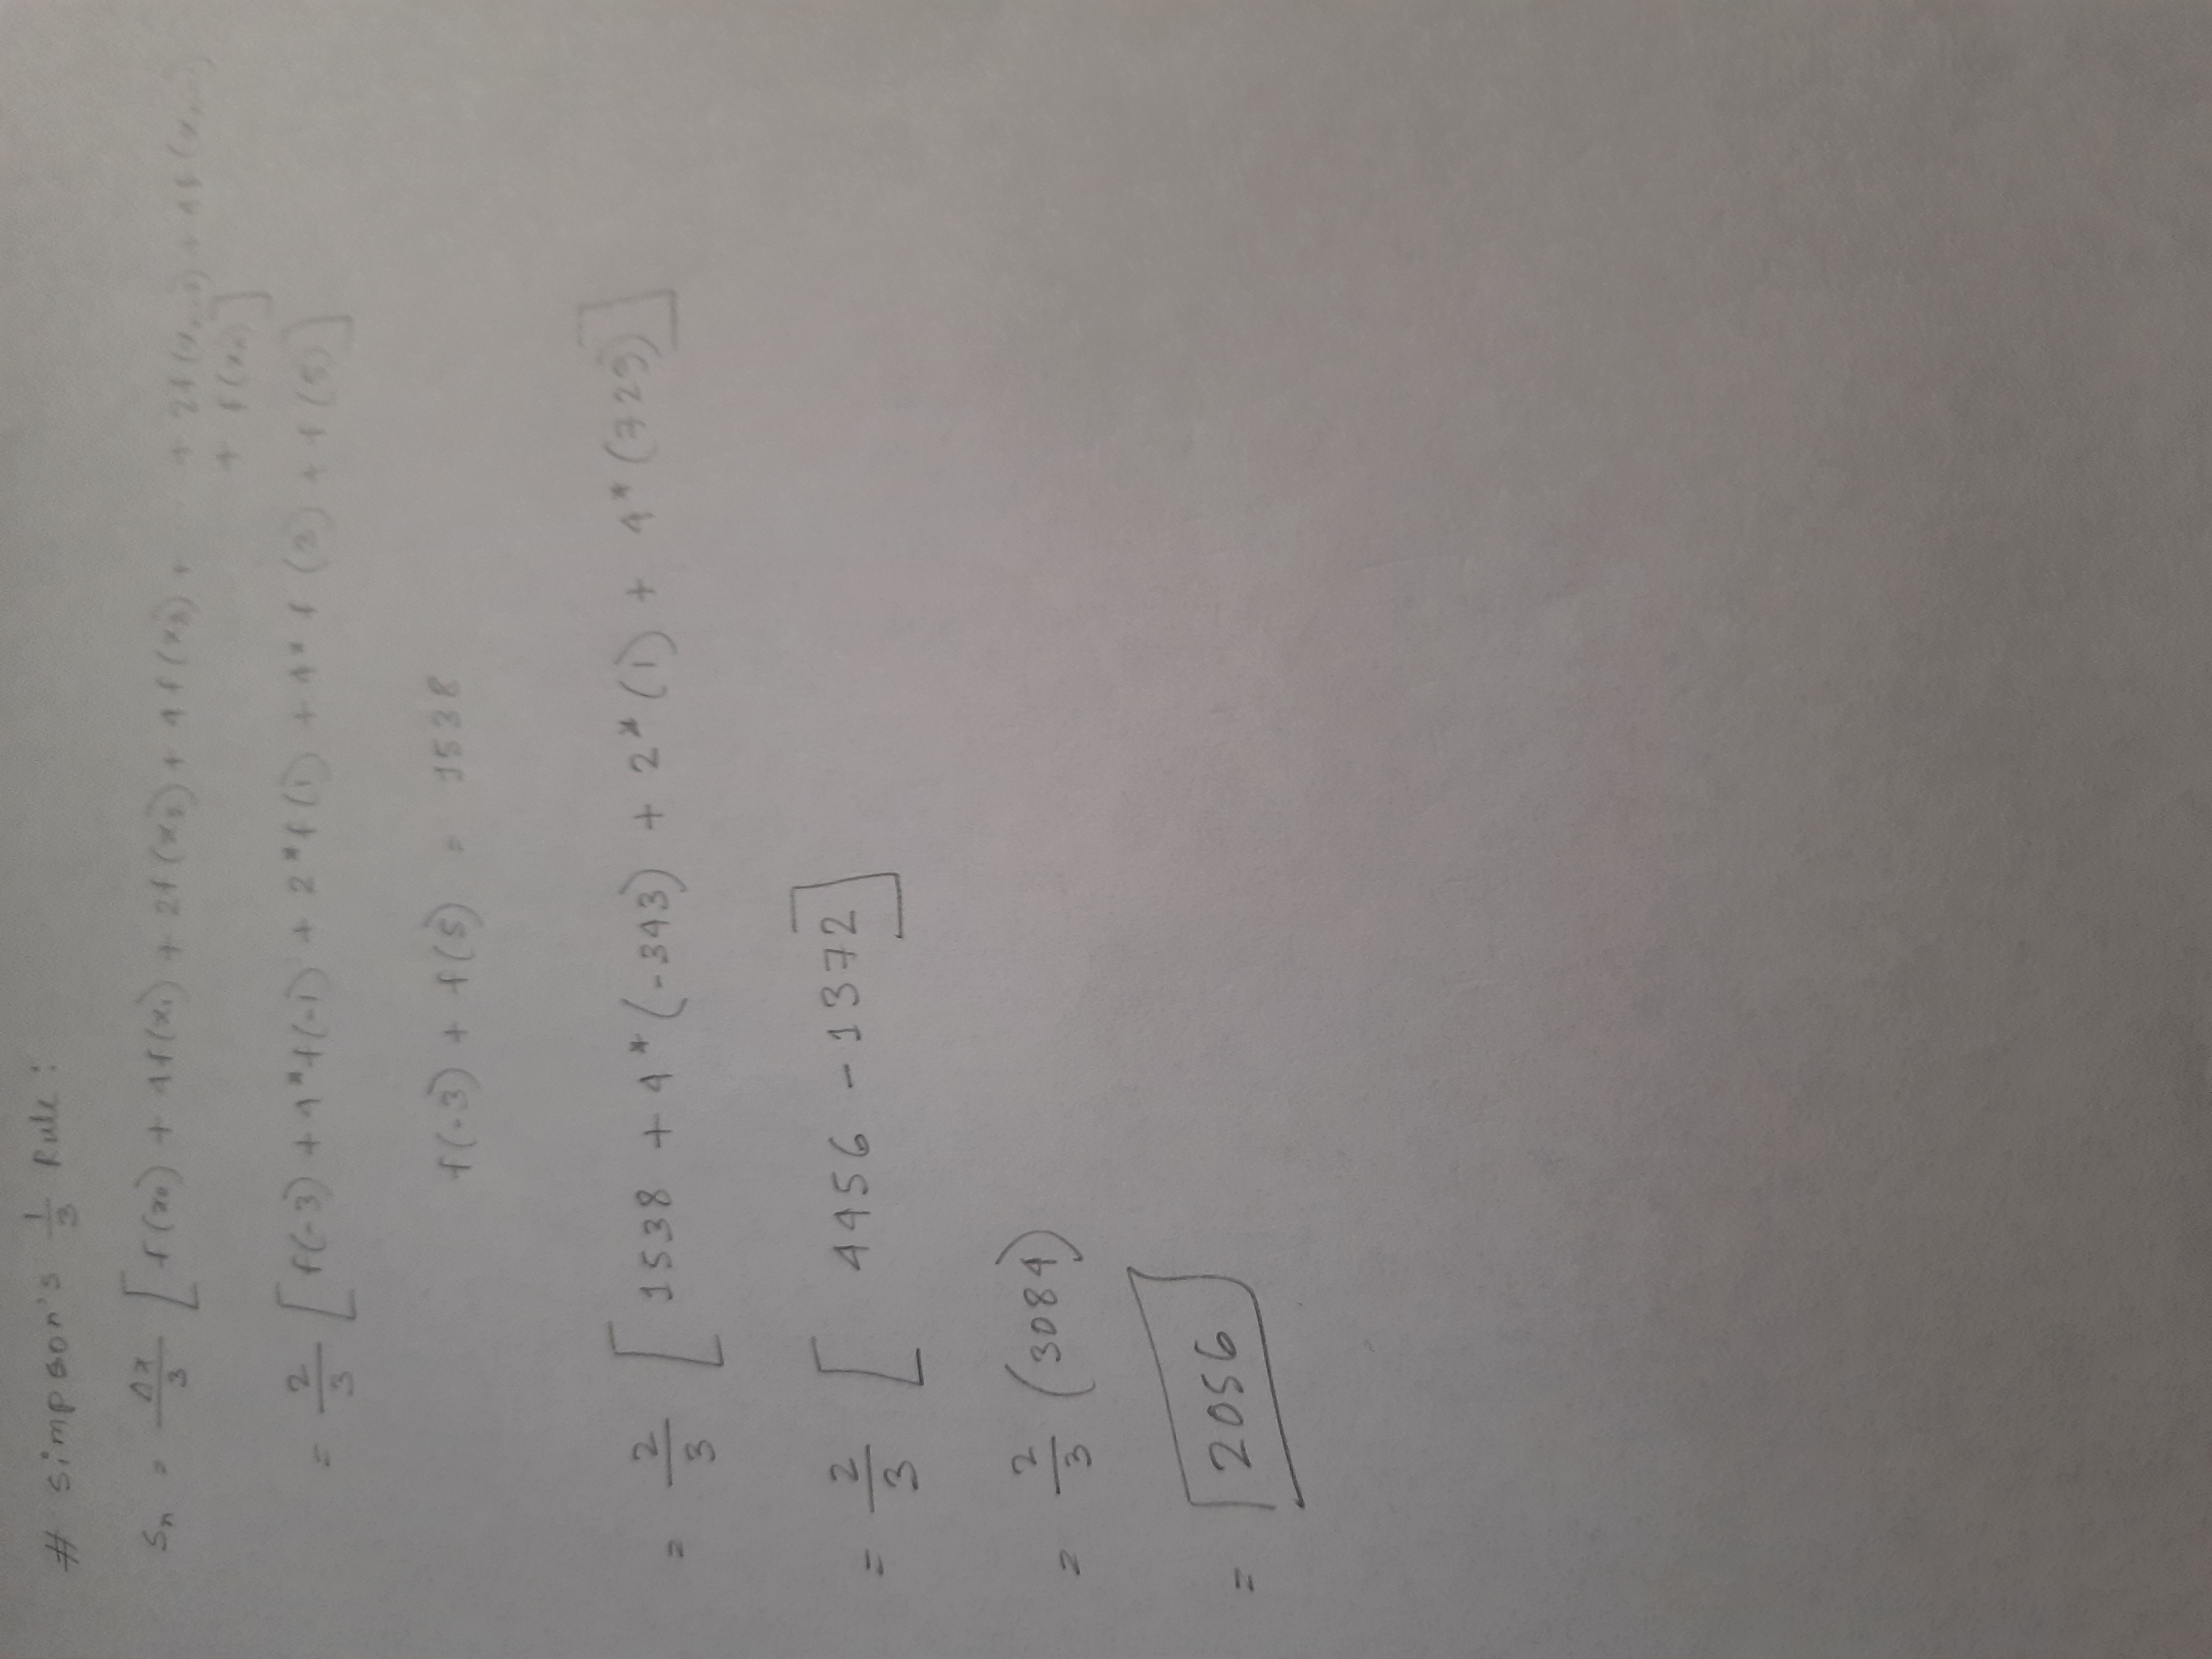 # Simpson's 1/3 Rule :
Sn = Δx/3 [ f(x0) + 4f(x1) + 2f(x2) + 4f(x3) + + 2f(xn-2) + 4f(xn-1)
+ f(xn) ]
= 2/3 [ f(-3) + 4*f(-1) + 2*f(1) + 4* f(3) + f(5) ]
f(-3) + f(5) = 1538
= 2/3 [ 1538 + 4*(-343) + 2*(1) + 4*(729) ]
= 2/3 [ 4456 - 1372 ]
= 2/3 (3084)
= 2056